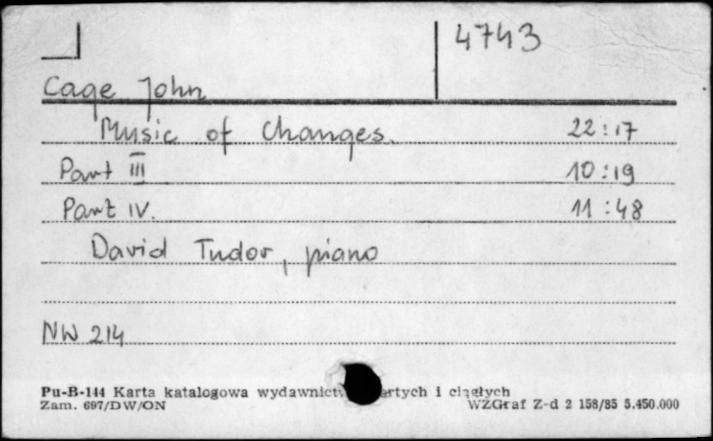 4743
Cage John
Music of Changes. 22:17
Part III 10:19
Part IV. 11:48
David Tudor, piano
NW 214
Pu-B-144 Karta katalogowa i ciągłych
Zam. 697/DW/ON WZGraf Z-d 2 158/85 5.450.000